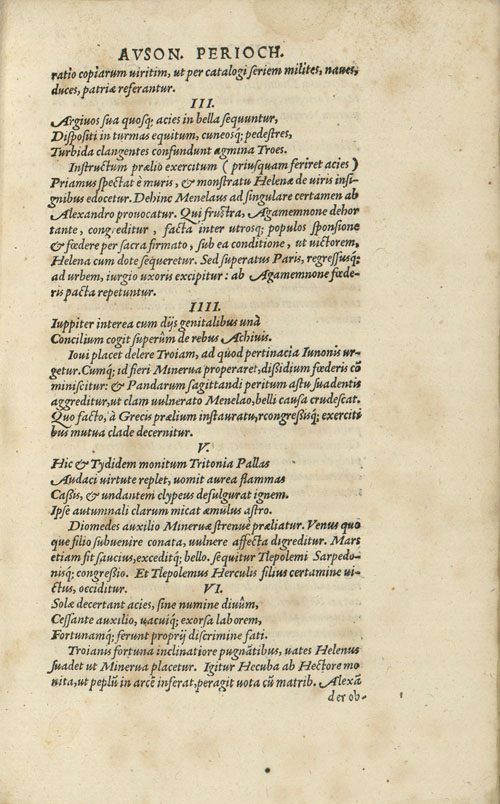 AVSON. PERIOCH.
ratio copiarum uiritim, ut per catalogi seriem milites, naues,
duces, patriæ referantur.
III.
Argiuos sua quosq; acies in bella sequuntur,
Dispositi in turmas equitum, cuneosq; pedestres,
Turbida clangentes confundunt agmina Troes.
Instructum prælio exercitum (priusquam feriret acies)
Priamus spectat è muris, & monstratu Helenæ de uiris insi-
gnibus edocetur. Dehinc Menelaus ad singulare certamen ab
Alexandro prouocatur. Qui frustra, Agamemnone dehor
tante, congreditur, facta inter utrosq; populos sponsione
& fœdere per sacra firmato, sub ea conditione, ut uictorem,
Helena cum dote sequeretur. Sed superatus Paris, regressusq;
ad urbem, iurgio uxoris excipitur: ab Agamemnone fœde-
ris pacta repetuntur.
IIII.
Iuppiter interea cum dijs genitalibus unà
Concilium cogit superûm de rebus Achiuis.
Ioui placet delere Troiam, ad quod pertinacia Iunonis ur-
getur. Cumq; id fieri Minerua properaret, dissidium fœderis cō
miniscitur: & Pandarum sagittandi peritum astu suadentis
aggreditur, ut clam uulnerato Menelao, belli causa crudescat.
Quo facto, à Grecis prælium instauratu, rcongressisq; exerciti
bus mutua clade decernitur.
V.
Hic & Tydidem monitum Tritonia Pallas
Audaci uirtute replet, uomit aurea flammas
Cassis, & undantem clypeus defulgurat ignem.
Ipse autumnali clarum micat æmulus astro.
Diomedes auxilio Mineruæ strenuè præliatur. Venus quo
que filio subuenire conata, uulnere affecta digreditur. Mars
etiam fit saucius, exceditq; bello. sequitur Tlepolemi Sarpedo-
nisq; congressio. Et Tlepolemus Herculis filius certamine ui-
ctus, occiditur. VI.
Solæ decertant acies, sine numine diuûm,
Cessante auxilio, uacuiq; exorsa laborem,
Fortunamq; ferunt proprij discrimine fati.
Troianis fortuna inclinatiore pugnātibus, uates Helenus
suadet ut Minerua placetur. Igitur Hecuba ab Hectore mo
nita, ut peplū in arcē inferat, peragit uota cū matrib. Alexā
der ob-